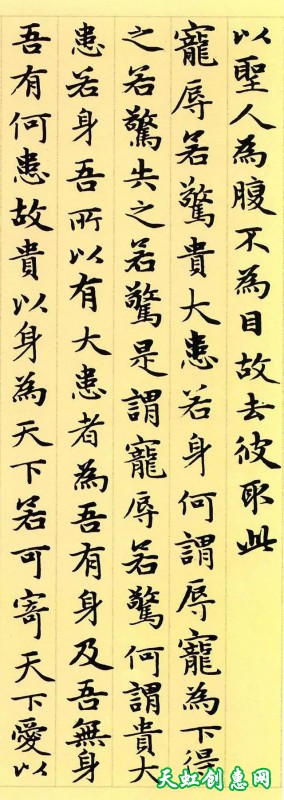 以聖人為腹不為目故去彼取此
寵辱若驚貴大患若身何謂辱寵為下得
之若驚失之若驚是謂寵辱若驚何謂貴大
患若身吾所以有大患者為吾有身及吾無身
吾有何患故貴以身為天下若可寄天下愛以
天虹创惠网